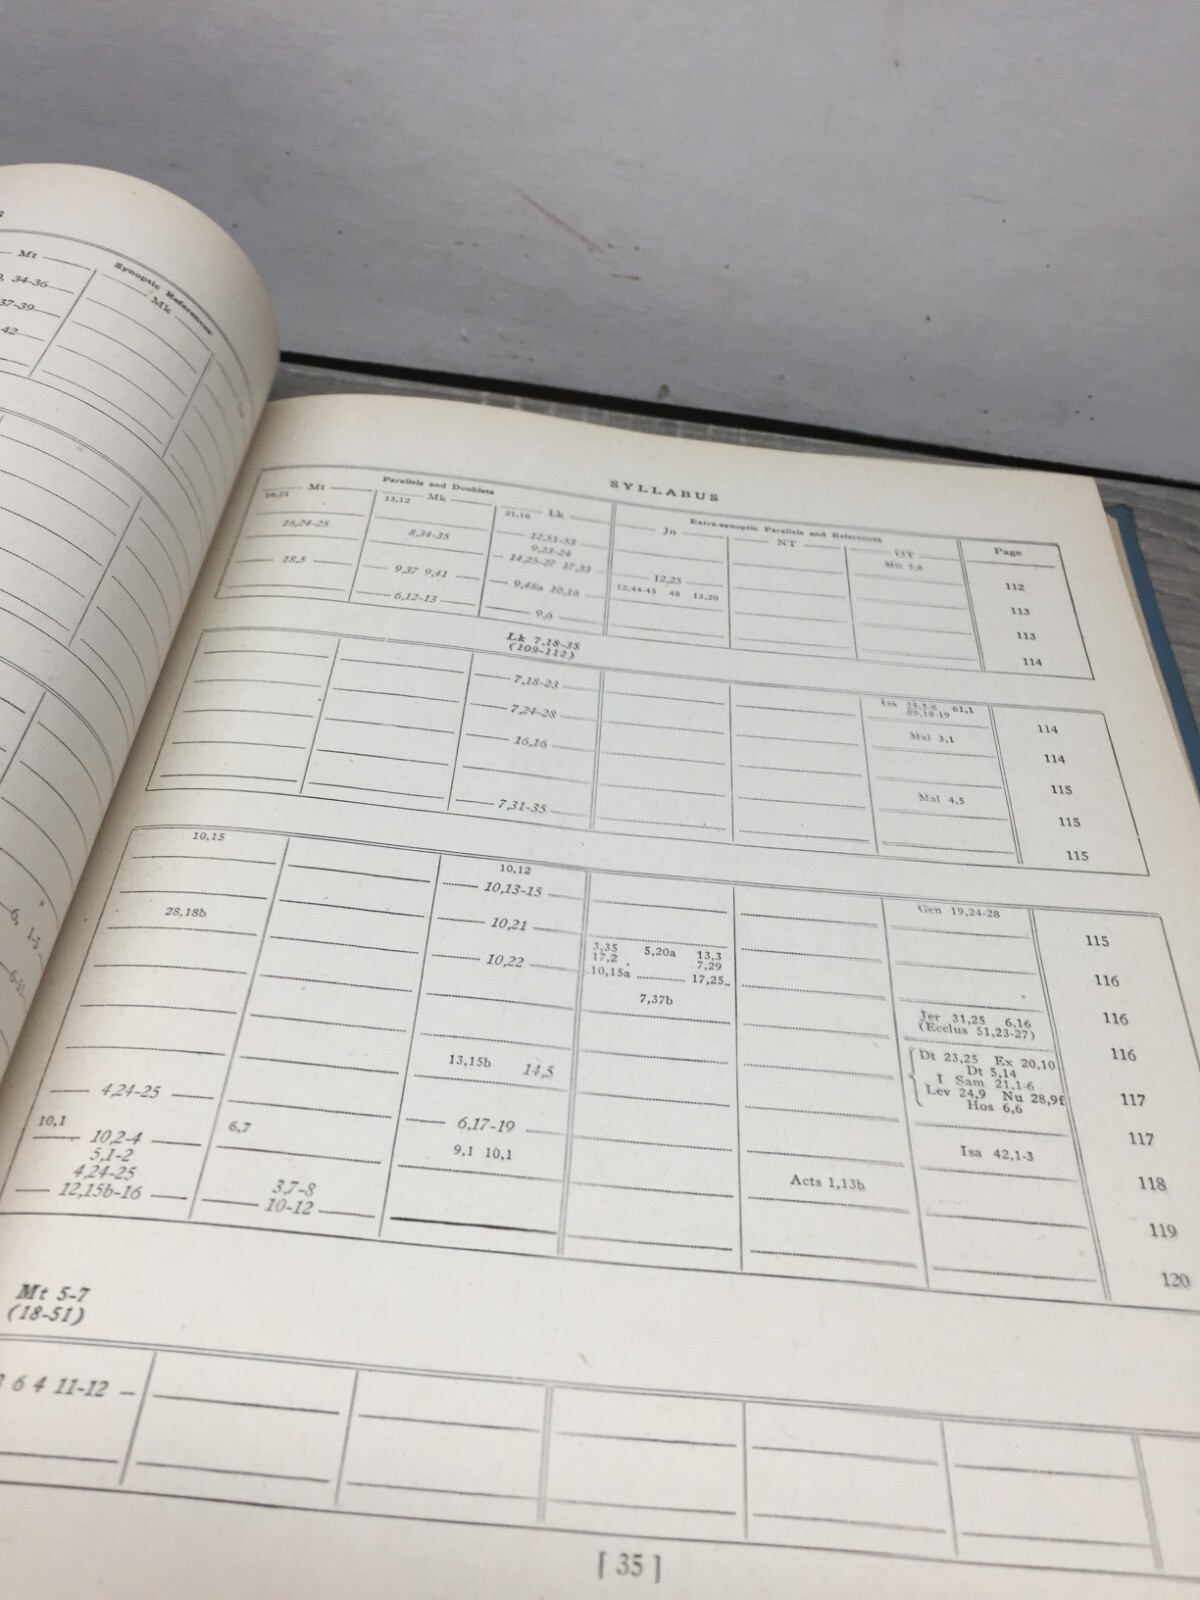 Mt
Synoptic References
Mk
34-36
37-39
42
6, 1-5
SYLLABUS
Parallels and Doublets
Extra-synoptic Parallels and References
Mt Mk Lk Jn NT OT Page
10,21 13,12 21,16
16,24-25 8,34-35 12,51-53
9,23-24
14,25-27 17,33 12,25 112
18,5 9,37 9,41 9,48a 10,16 12,44-45 48 13,20 113
113
6,12-13 9,6 114
Lk 7,18-35
(109-112)
7,18-23 61,1 114
29,18-19
7,24-28 Mal 3,1 114
16,16 115
Mal 4,5 115
7,31-35 115
10,15 10,12
10,13-15 Gen 19,24-28 115
28,18b 10,21 116
10,22 3,35 5,20a 13,3
17,2 7,29
10,15a 17,25
7,37b Jer 31,25 6,16 116
(Ecclus 51,23-27)
116
13,15b 14,5 Dt 23,25 Ex 20,10
Dt 5,14
I Sam 21,1-6
Lev 24,9 Nu 28,9f 117
Hos 6,6
4,24-25 6,17-19 Isa 42,1-3 117
10,1 6,7 9,1 10,1 Acts 1,13b 118
10,2-4
5,1-2
4,24-25 3,7-8 119
12,15b-16 10-12 120
Mt 5-7
(18-51)
6 4 11-12
[ 35 ]